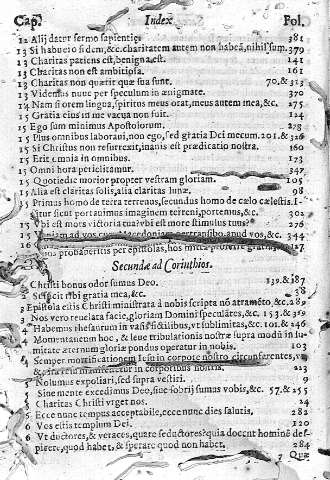 Cap. Index Fol.
12 Alij datur sermo sapientiæ. 381
13 Si habuero fidem, &c. charitatem autem non habeã, nihil sum. 379
13 Charitas patiens est, benigna est. 141
13 Charitas non est ambitiosa. 161
13 Charitas non quærit quæ sua sunt. 70. & 313
13 Videmus nunc per speculum in ænigmate. 370
14 Nam si orem lingua, spiritus meus orat, mens autem mea, &c. 275
15 Gratia eius in me vacua non fuit. 124
15 Ego sum minimus Apostolorum. 278
15 Plus omnibus laboraui, non ego, sed gratia Dei mecum. 201. & 326
15 Si Christus non resurrexit, inanis est prædicatio nostra. 160
15 Erit omnia in omnibus. 173
15 Omni hora periclitamur. 347
15 Quotidie morior propter vestram gloriam. 105
15 Alia est claritas solis, alia claritas lunæ. 98
15 Primus homo de terra terrenus, secundus homo de cælo cælestis.
tur sicut portauimus imaginem terreni, portemus, &c. 302
15 Vbi est mors victoria tua? vbi est mors stimulus tuus? 276
Macedoniam pertransibo, apud vos, &c. 344
16 probaueritis per epistolas, hos mittã
Secundæ ad Corinthios.
Christi bonus odor sumus Deo. 139. & 187
2 Sufficit tibi gratia mea, &c. 38
3 Epistola estis Christi ministrata à nobis scripta nõ atramẽto, &c. 289
3 Nos vero reuelata facie, gloriam Domini speculãtes, &c. 153. & 359
4 Habemus thesaurum in vasis fictilibus, vt sublimitas, &c. 101. & 246
4 Momentaneum hoc, & leue tribulationis nostræ supra modũ in su-
mitate æternum gloriæ pondus operatur in nobis. 103
4 Semper mortificationem Iesu in corpore nostro circunferentes, vt
& vita manifestetur in corporibus nostris. 223
5 Nolumus expoliari, sed supra vestiri. 9
5 Siue mente excedimus Deo, siue sobrij sumus vobis, &c. 57. & 255
5 Charitas Christi vrget nos.
6 Ecce nunc tempus acceptabile, ecce nunc dies salutis, 282
6 Vos estis templum Dei. 120
6 Vt ductores, & veraces, quare seductores? quia docent hominẽ des-
picere, quod habet, & sperare quod non habet. 284
7 Quæ